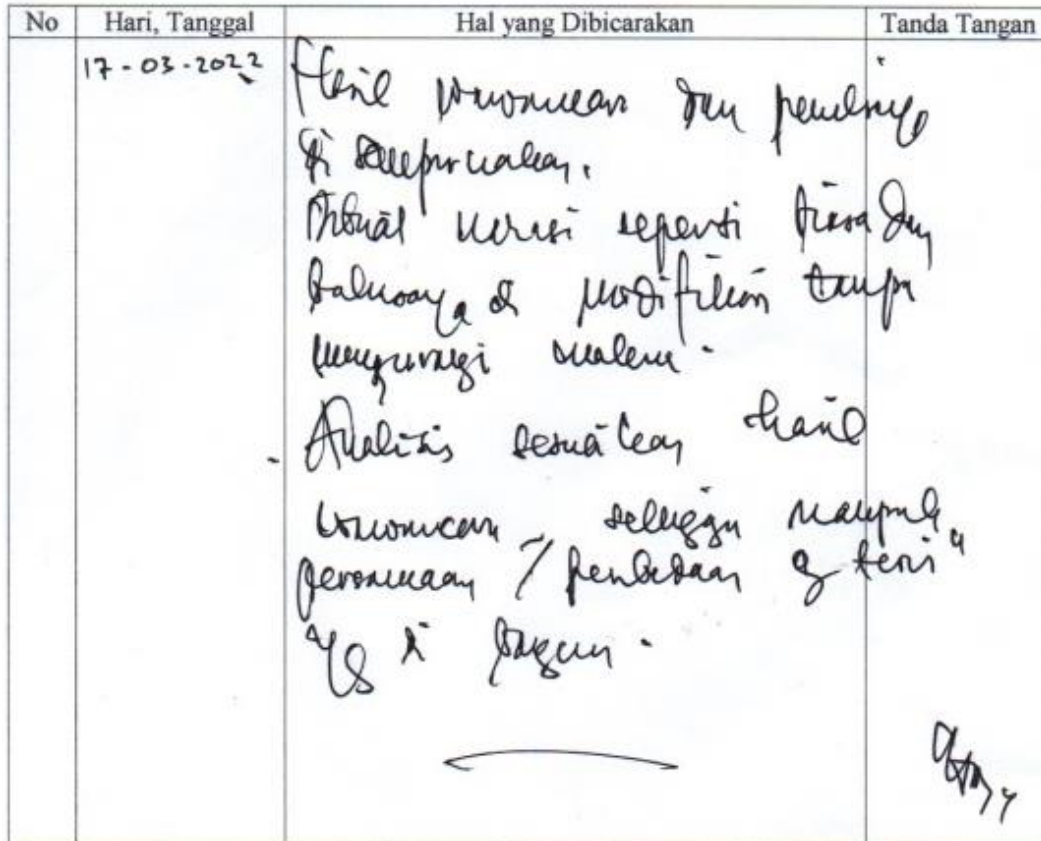 No Hari, Tanggal Hal yang Dibicarakan Tanda Tangan
17-03-2022 Hasil wawancara dan
di sempurnakan.
seperti biasa dan
bahasanya di modifikasi tanpa
mengurangi makna.
- Analisis sesuaikan hasil
wawancara, sehingga nampak
persamaan / perbedaan dg teori"
yg di bangun.